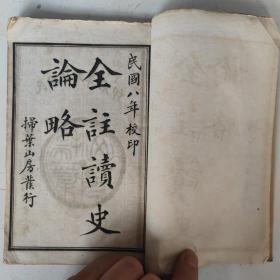 民國八年校印
全註讀史
論略
掃葉山房發行